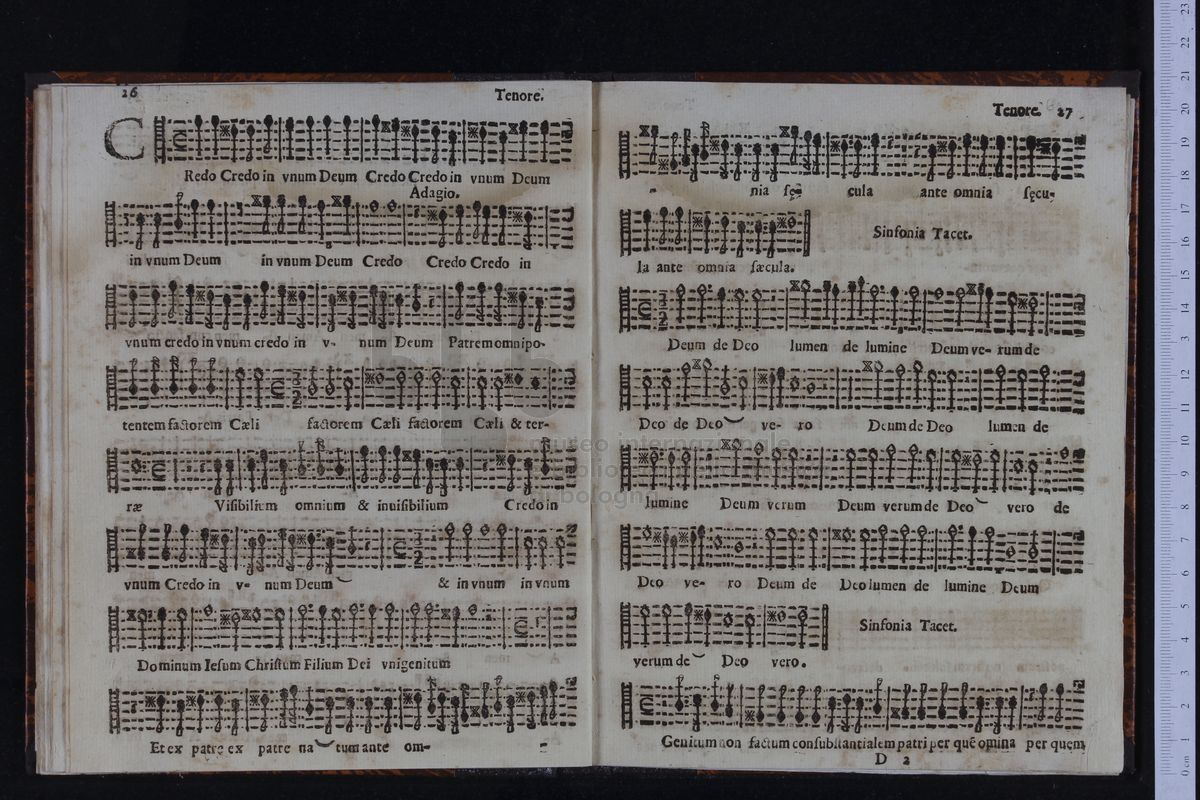 26
Tenore.
C
Redo Credo in vnum Deum Credo Credo in vnum Deum
Adagio.
in vnum Deum in vnum Deum Credo Credo Credo in
vnum credo in vnum credo in v- num Deum Patrem omnipo-
tentem factorem Cæli factorem Cæli factorem Cæli & ter-
ræ Visibilium omnium & inuisibilium Credo in
vnum Credo in v- num Deum & in vnum in vnum
Dominum Iesum Christum Filium Dei vnigenitum
Et ex patre ex patre na tum ante om-
Tenore. 27
nia sę- cula ante omnia sęcu-
la ante omnia sæcula.
Sinfonia Tacet.
Deum de Deo lumen de lumine Deum ve- rum de
Deo de Deo ve- ro Deum de Deo lumen de
lumine Deum verum Deum verum de Deo vero de
Deo ve- ro Deum de Deo lumen de lumine Deum
verum de Deo vero.
Sinfonia Tacet.
Genitum non factum consubstantialem patri per quẽ omina per quem
D 2
museo internazionale
bologna
0 cm 1 2 3 4 5 6 7 8 9 10 11 12 13 14 15 16 17 18 19 20 21 22 23